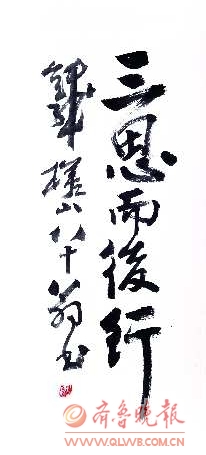 三思而後行
八十翁书
齐鲁晚报
WWW.QLWB.COM.CN